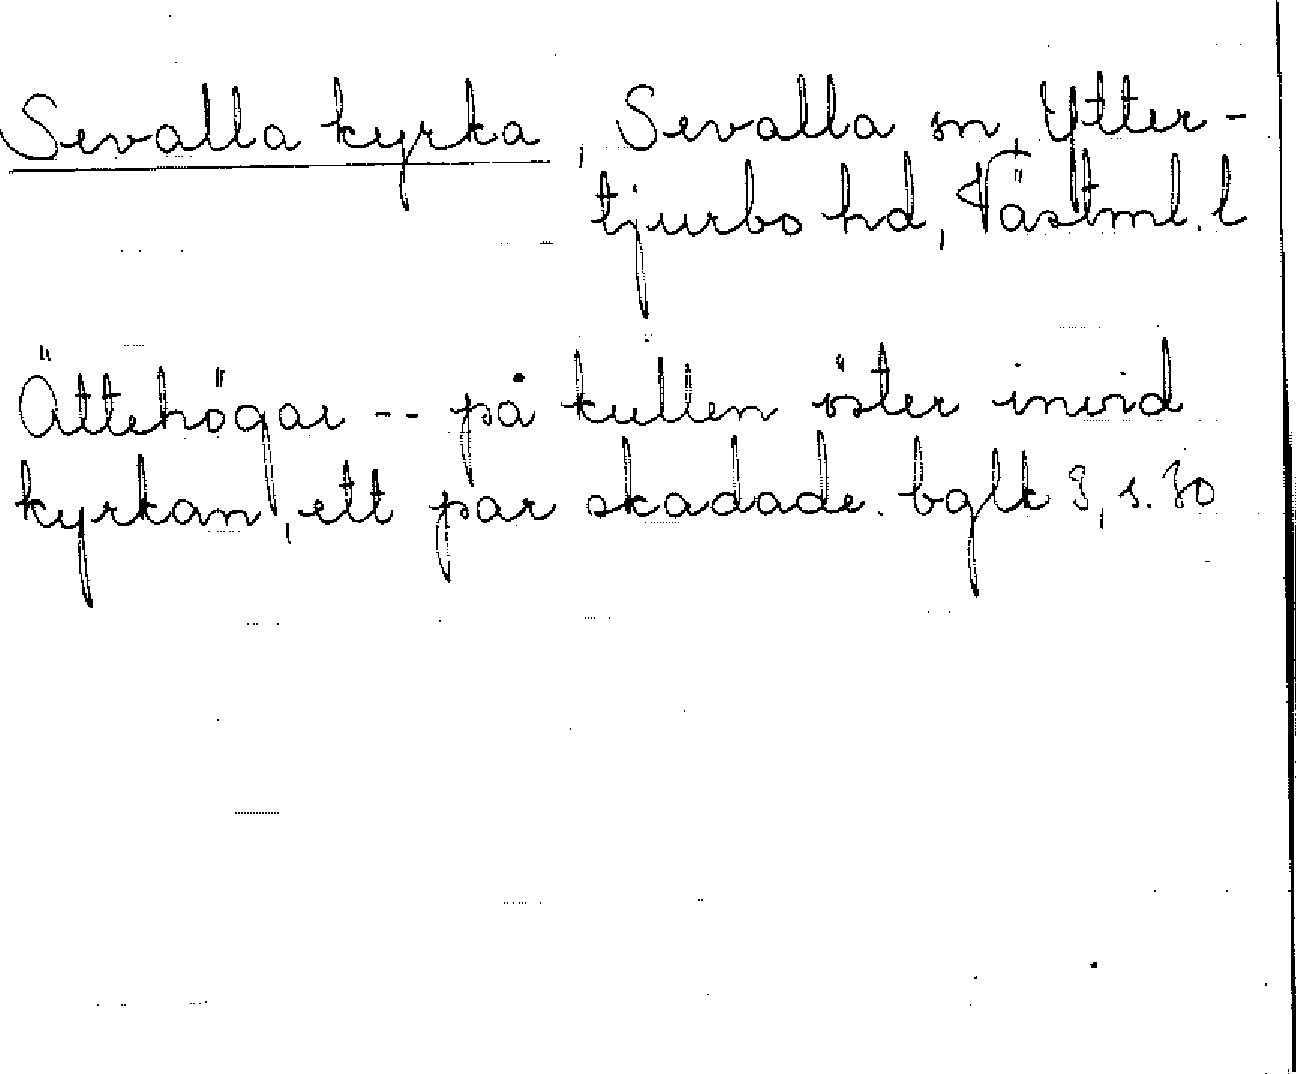 Sevalla kyrka, Sevalla sn, Ytter-
tjurbo hd, Västml. l
Ättehögar -- på kullen öster invid
kyrkan, ett par skadade. bglk 3, s. 30